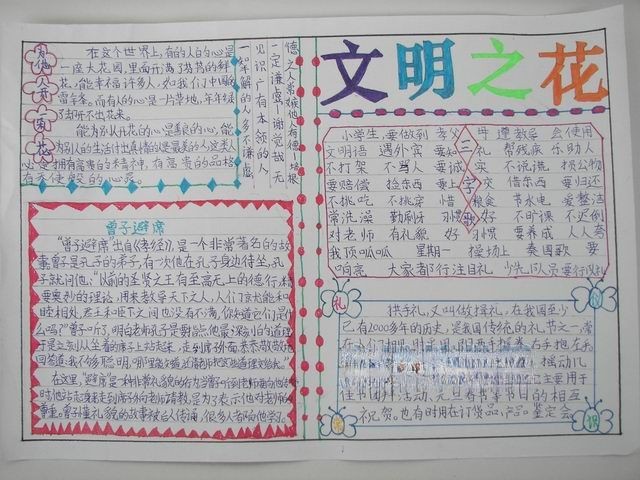 文明之花
为他人开一朵花
在这个世界上,有的人的心是
一座大花园,里面开满了芬芳的鲜
花,能幸福许多人,如我们中国的
雷锋。而有人的心是一片荒地,年年岁
岁
能为别人开花的心是善良的心,能
为别人的生活付出真情的是最美的人,这类人
心是拥有高贵的
德之人常对他有德
一定谦虚
见识广有本领的人
一知半解的人多不谦虚
曾子避席
“曾子避席”出自《孝经》,是一个非常著名的故
事。曾子是孔子的弟子,有一次他在孔子身边侍坐,孔
子就问他:“以前的圣贤之王有至高无上的德行,精
要奥妙的理论,用来教导天下之人,人们就能和
睦相处,君王和臣下之间也没有不满,你知道它们是什
么吗?”曾子听了,明白老师孔子是要指点他最深刻的道理,
于是立刻从坐着的席子上站起来,走到席子外面,恭恭敬敬地
回答道:“我不够聪明,哪里能知道,还请老师把这些道理教给我。”
在这里,避席是一种非常礼貌的行为,当曾子听到老师要向他传授
时,他站起身来,走到席子外向老师请教,是为了表示他对老师的
尊重。曾子懂礼貌的故事被后人传诵,很多人都向他学习。
三字歌
小学生 要做到 孝父母 遵教导 会使用
文明语 遇外宾 要知礼 帮残疾 乐助人
不打架 不骂人 要诚实 不说谎 损公物
要赔偿 拾东西 要上交 借东西 要归还
不挑吃 不挑穿 惜粮食 节水电 爱整洁
常洗澡 勤刷牙 习惯好 不旷课 不迟到
对老师 有礼貌 好习惯 要养成 人人夸
我顶呱呱 星期一 操场上 奏国歌 要
响亮 大家都行注目礼 少先队员要行队礼
礼
拱手礼,又叫做揖礼,在我国至少
已有2000多年的历史,是我国传统的礼节之一,常
在人们相见时采用,即两手握拳,右手抱左手
摇动几
主要用于
佳节团拜活动、元旦春节等节日的相互
祝贺。也有时用在订货品、产品鉴定会